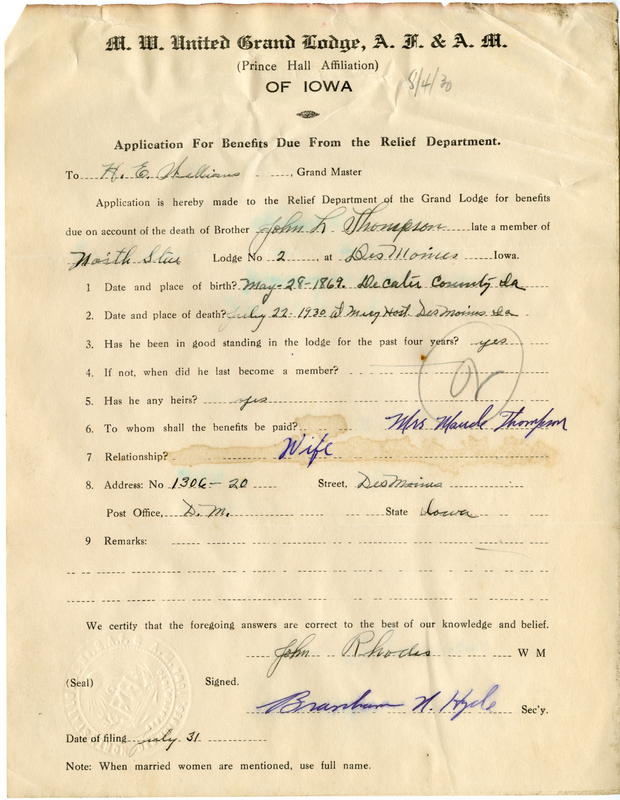 M. W. United Grand Lodge, A. F. & A. M.
(Prince Hall Affiliation)
OF IOWA
8/4/30
Application For Benefits Due From the Relief Department.
To H. E. Williams, Grand Master
Application is hereby made to the Relief Department of the Grand Lodge for benefits
due on account of the death of Brother John L Thompson late a member of
North Star Lodge No 2, at Des Moines Iowa.
1 Date and place of birth? May-28-1869. Decater County Ia
2. Date and place of death? July 22-1930 at Mercy Host. Des Moines Ia
3. Has he been in good standing in the lodge for the past four years? yes
4. If not, when did he last become a member?
5. Has he any heirs? yes
6. To whom shall the benefits be paid? Mrs Maude Thompson
7 Relationship? Wife
8. Address: No 1306-20 Street, Des Moines
Post Office, D. M. State Iowa
9 Remarks:
We certify that the foregoing answers are correct to the best of our knowledge and belief.
John Rhodes W M
(Seal) Signed.
N. Hyde Sec'y.
Date of filing July 31
Note: When married women are mentioned, use full name.